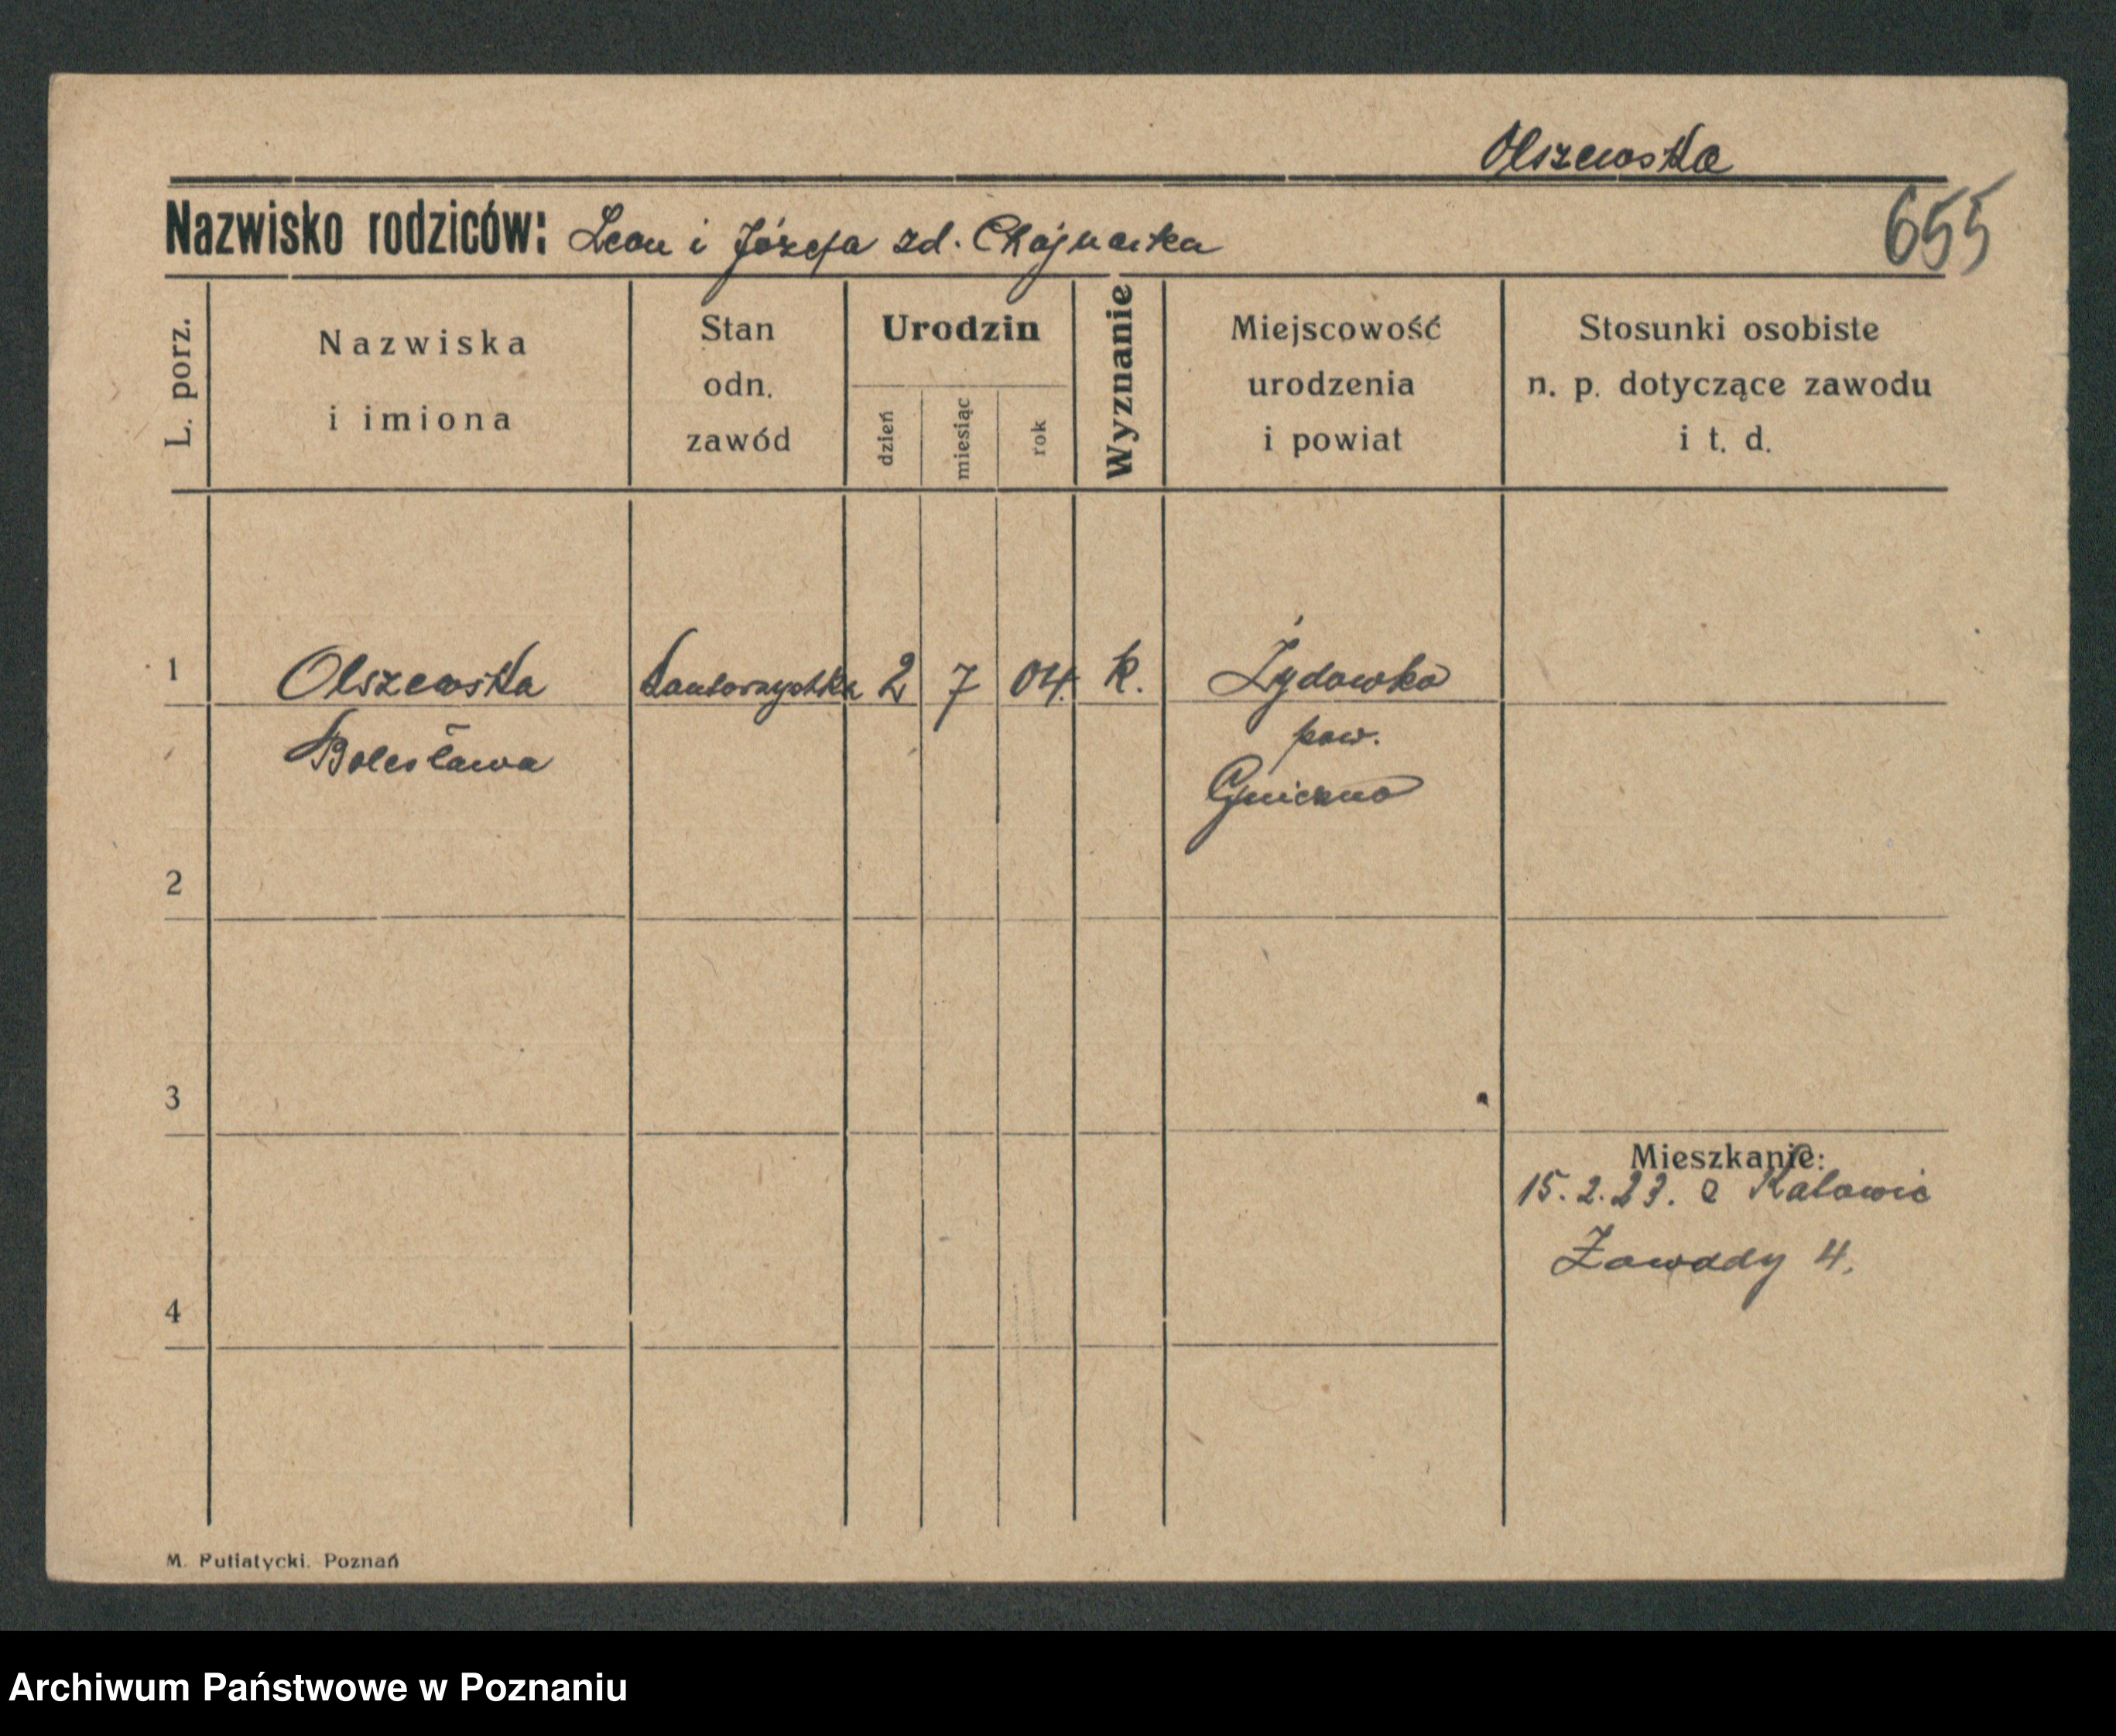 Olszewska
Nazwisko rodziców: Leon i Józefa zd. Chojnacka
655
L. porz.
Nazwiska
i imiona
Stan
odn.
zawód
Urodzin
dzień
miesiąc
rok
Wyznanie
Miejscowość
urodzenia
i powiat
Stosunki osobiste
n. p. dotyczące zawodu
i t. d.
1 Olszewska Kantorzystka 2 7 04. k. Żydowko
Bolesława pow.
Gniezno
2
3
Mieszkanie:
15. 2. 23. z
Zawady 4.
4
M. Putiatycki. Poznań
Archiwum Państwowe w Poznaniu